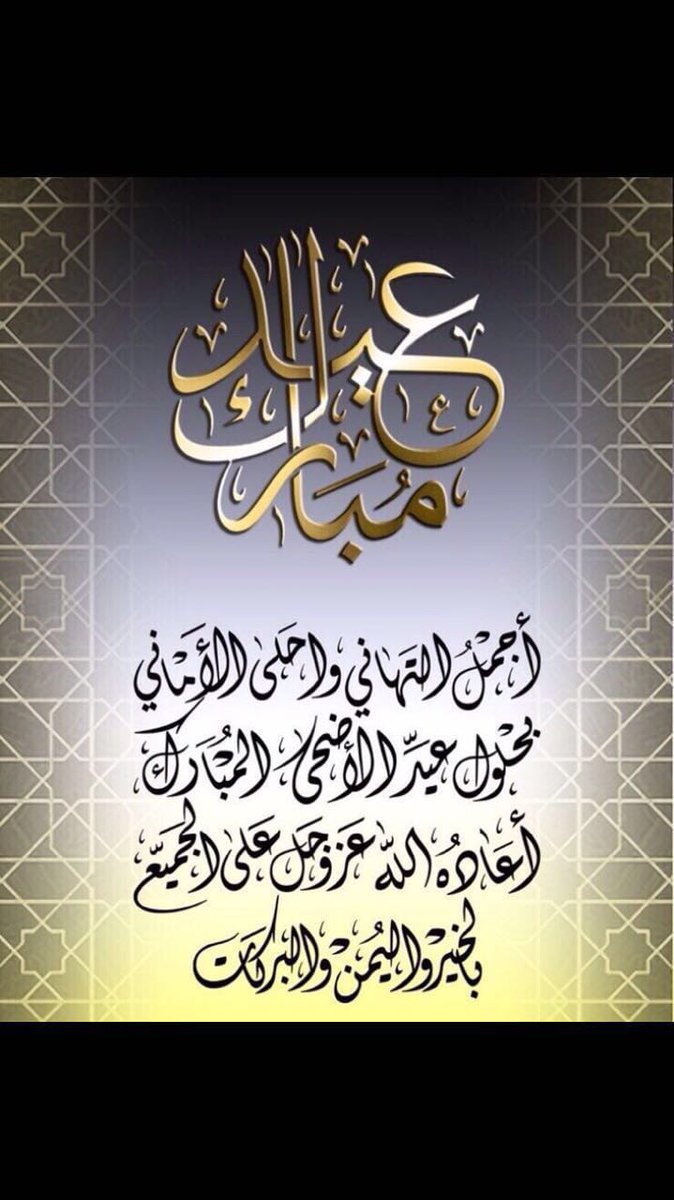 عيد
مُبارك
أجمل التهاني واحلى الأماني
بحلول عيد الأضحى المبارك
أعاده الله عز وجل على الجميع
بالخير واليمن والبركات